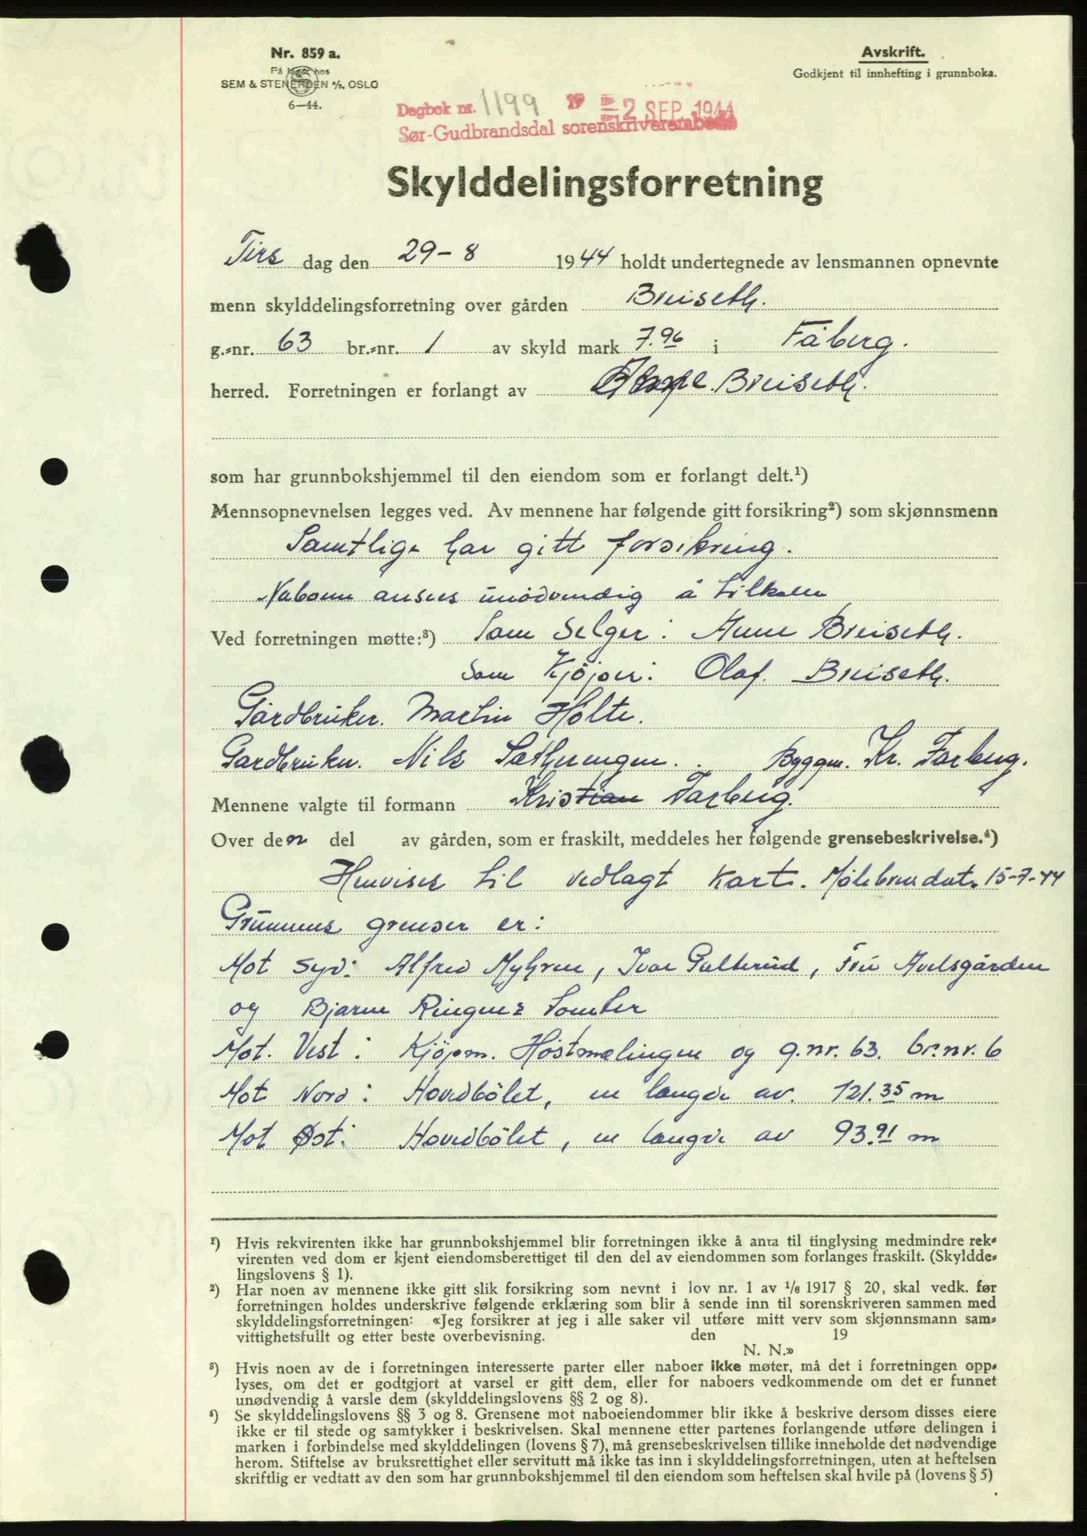 Nr. 859 a.
På lager hos
SEM & STENERSEN A/S, OSLO
6—44.
Avskrift.
Godkjent til innhefting i grunnboka.
Dagbok nr. 1199 19 2 SEP. 1944
Sør-Gudbrandsdal sorenskriverembede
Skylddelingsforretning
Tirs dag den 29-8 1944 holdt undertegnede av lensmannen opnevnte
menn skylddelingsforretning over gården Breiseth.
g.-nr. 63 br.-nr. 1 av skyld mark 7.96 i Fåberg.
herred. Forretningen er forlangt av Breiseth.
som har grunnbokshjemmel til den eiendom som er forlangt delt.¹)
Mennsopnevnelsen legges ved. Av mennene har følgende gitt forsikring²) som skjønnsmenn
Samtlige har gitt forsikring.
Naboene anses unødvendig å tilkalle
Ved forretningen møtte:³) Som Selger: Anne Breiseth.
Som Kjøper: Olaf. Breiseth.
Gårdbruker. Martin Holte.
Gardbruker. Nils Sætherengen. Byggm. Kr. Farberg.
Mennene valgte til formann Kristian Farberg.
Over den del av gården, som er fraskilt, meddeles her følgende grensebeskrivelse.⁴)
Henviser til vedlagt Kart. Målebrev dat. 15-7-44
Grunnens grenser er:
Mot Syd: Alfred Myhren, Ivar Galterud, Fru Avelsgården
og Bjarne Ringnes Tomter
Mot. Vest: Kjøpm. Høstmælingen og g.nr. 63. br.nr. 6
Mot Nord: Hovedbølet, en lengde av. 121.35 m
Mot Øst: Hovedbølet, en lengde av 93.91 m
¹) Hvis rekvirenten ikke har grunnbokshjemmel blir forretningen ikke å anta til tinglysing medmindre rek-
virenten ved dom er kjent eiendomsberettiget til den del av eiendommen som forlanges fraskilt. (Skyldde-
lingslovens § 1).
²) Har noen av mennene ikke gitt slik forsikring som nevnt i lov nr. 1 av 1/6 1917 § 20, skal vedk. før
forretningen holdes underskrive følgende erklæring som blir å sende inn til sorenskriveren sammen med
skylddelingsforretningen: «Jeg forsikrer at jeg i alle saker vil utføre mitt verv som skjønnsmann sam-
vittighetsfullt og etter beste overbevisning. den 19
N. N.»
³) Hvis noen av de i forretningen interesserte parter eller naboer ikke møter, må det i forretningen opp-
lyses, om det er godtgjort at varsel er gitt dem, eller for naboers vedkommende om det er funnet
unødvendig å varsle dem (skylddelingslovens §§ 2 og 8).
⁴) Se skylddelingslovens §§ 3 og 8. Grensene mot naboeiendommer blir ikke å beskrive dersom disses eiere
ikke er til stede og samtykker i beskrivelsen. Skal mennene etter partenes forlangende utføre delingen i
marken i forbindelse med skylddelingen (lovens § 7), må grensebeskrivelsen tillike inneholde det nødvendige
herom. Stiftelse av bruksrettighet eller servitutt må ikke tas inn i skylddelingsforretningen, uten at heftelsen
skriftlig er vedtatt av den som har grunnbokshjemmel til den eiendom som heftelsen skal hvile på (lovens § 5)